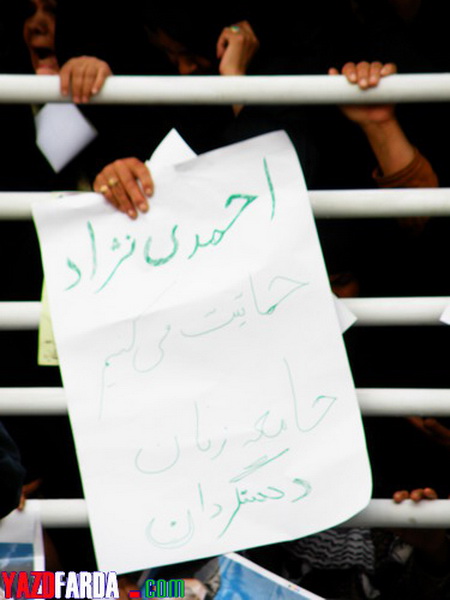 احمدی نژاد
حمایت می کنیم
جامعه زنان
دستگردان
YAZDFARDA.com